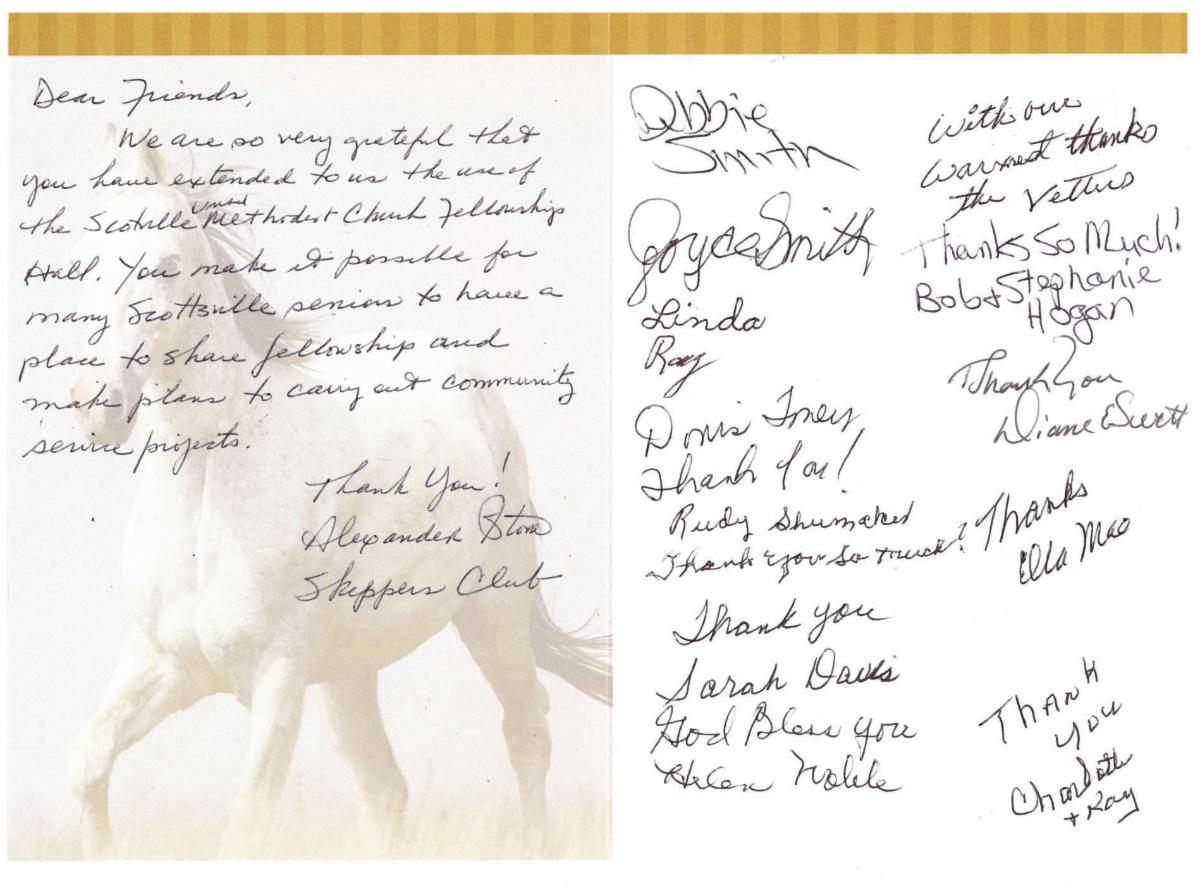 Dear Friends,
We are so very grateful that
you have extended to us the use of
the Scotville United Methodist Church Fellowship
Hall. You make it possible for
many Scottsville seniors to have a
place to share fellowship and
make plans to carry out community
service projects.
Thank You!
Alexander Stone
Skippers Club
Debbie
Smith
Joyce Smith
Linda
Ray
Doris
Thank You!
Rudy Shumaker
Thank you so much!
Thank you
Sarah Davis
God Bless you
Helen Noble
With our
warmest thanks
the Vetters
Thanks So Much!
Bob & Stephanie
Hogan
Thank You
Diane
Thanks
Ella Mae
Thank
you
Charlotte
+ Ray